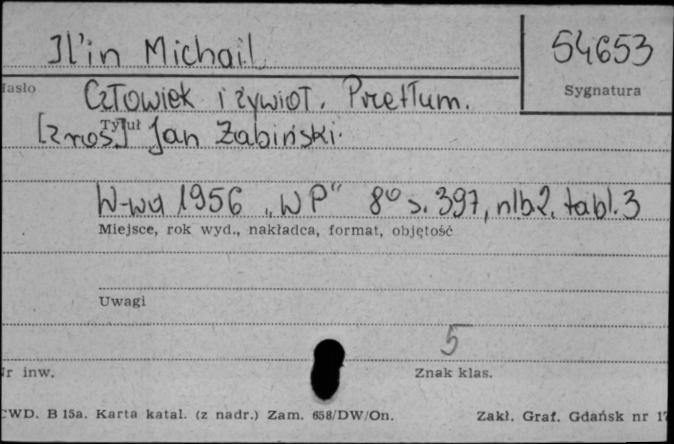 Il'in Michail
54653
Hasło
Sygnatura
Człowiek i żywioł. Przetłum.
[z ros.] Jan Żabiński.
Tytuł
W-wa 1956 „WP" 8° s. 397, nlb 2, tabl. 3
Miejsce, rok wyd., nakładca, format, objętość
Uwagi
5
Nr inw.
Znak klas.
CWD. B 15a. Karta katal. (z nadr.) Zam. 658/DW/On.
Zakł. Graf. Gdańsk nr